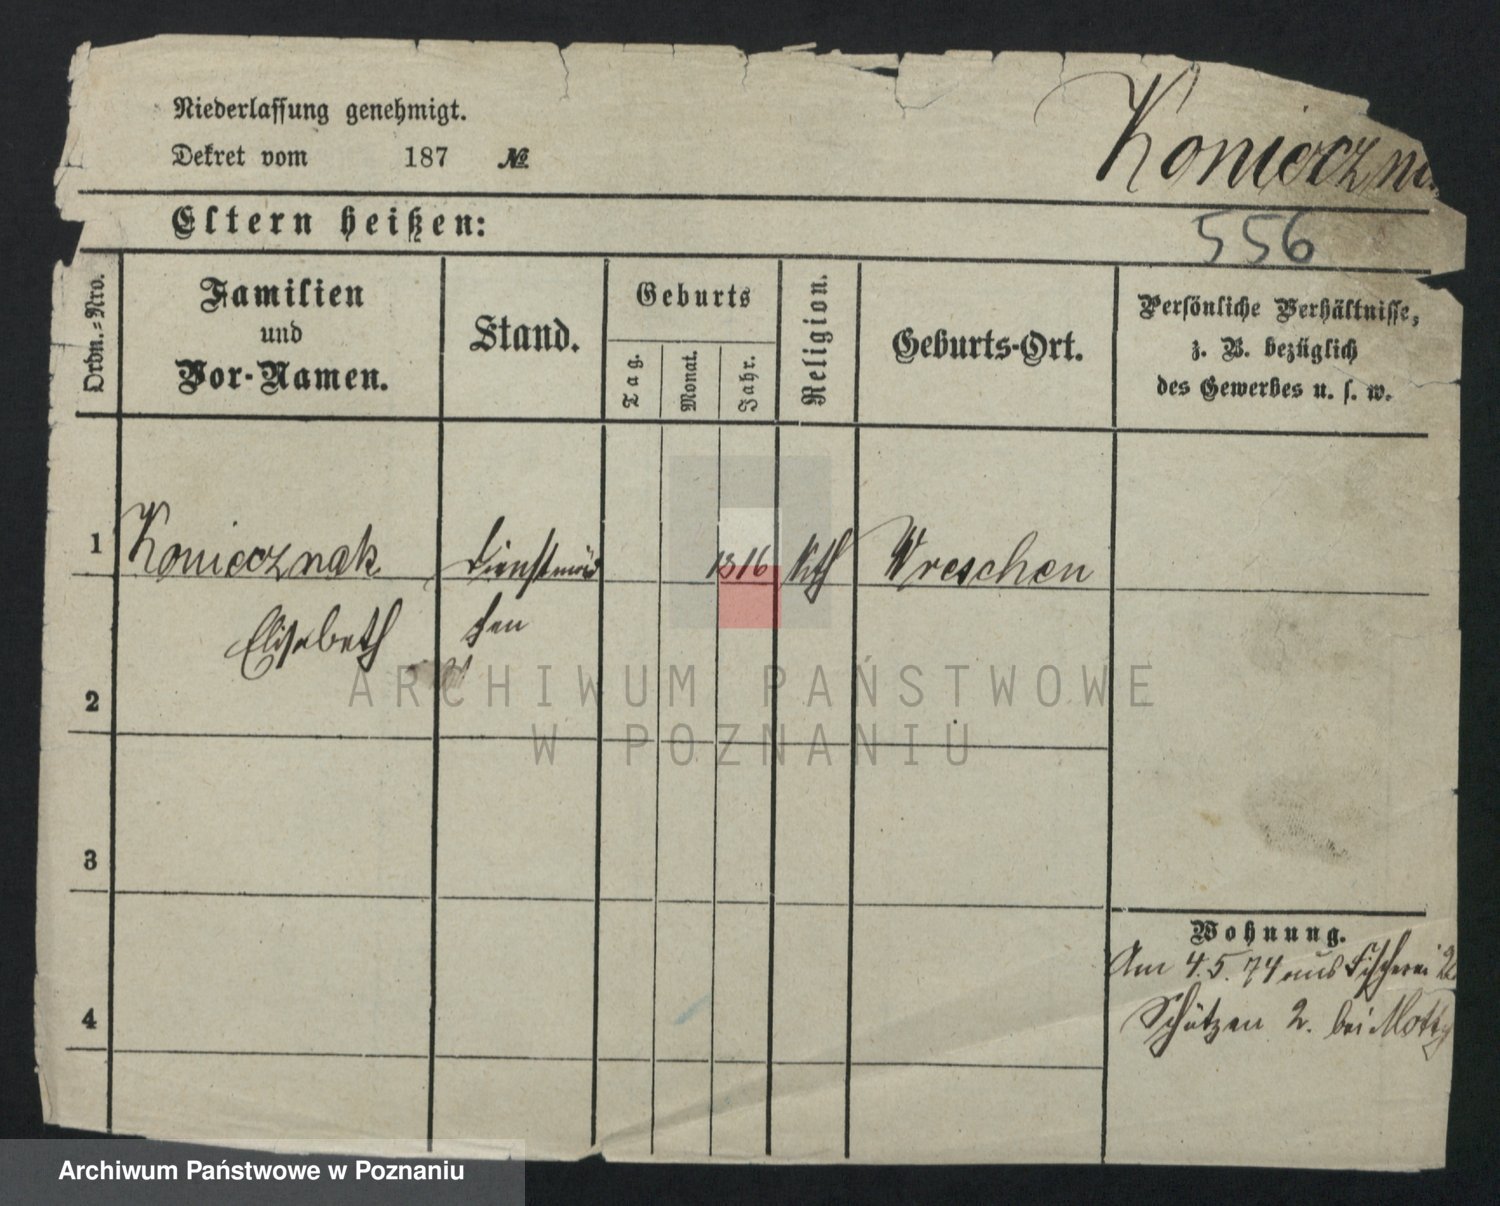 Niederlassung genehmigt.
Dekret vom 187 №
Konieczna
Eltern heißen:
556
Ordn.=Nro.
Familien
und
Vor-Namen.
Stand.
Geburts
Tag.
Monat.
Jahr.
Religion.
Geburts-Ort.
Persönliche Verhältnisse,
z. B. bezüglich
des Gewerbes u. s. w.
1 Koniecznak Dienstmäd 1816 Kth Wreschen
Elisabeth chen
2
ARCHIWUM PAŃSTWOWE
W POZNANIU
3
Wohnung.
Am 4.5.74 aus Fischerei
4
Schützen 2. bei Motty
Archiwum Państwowe w Poznaniu